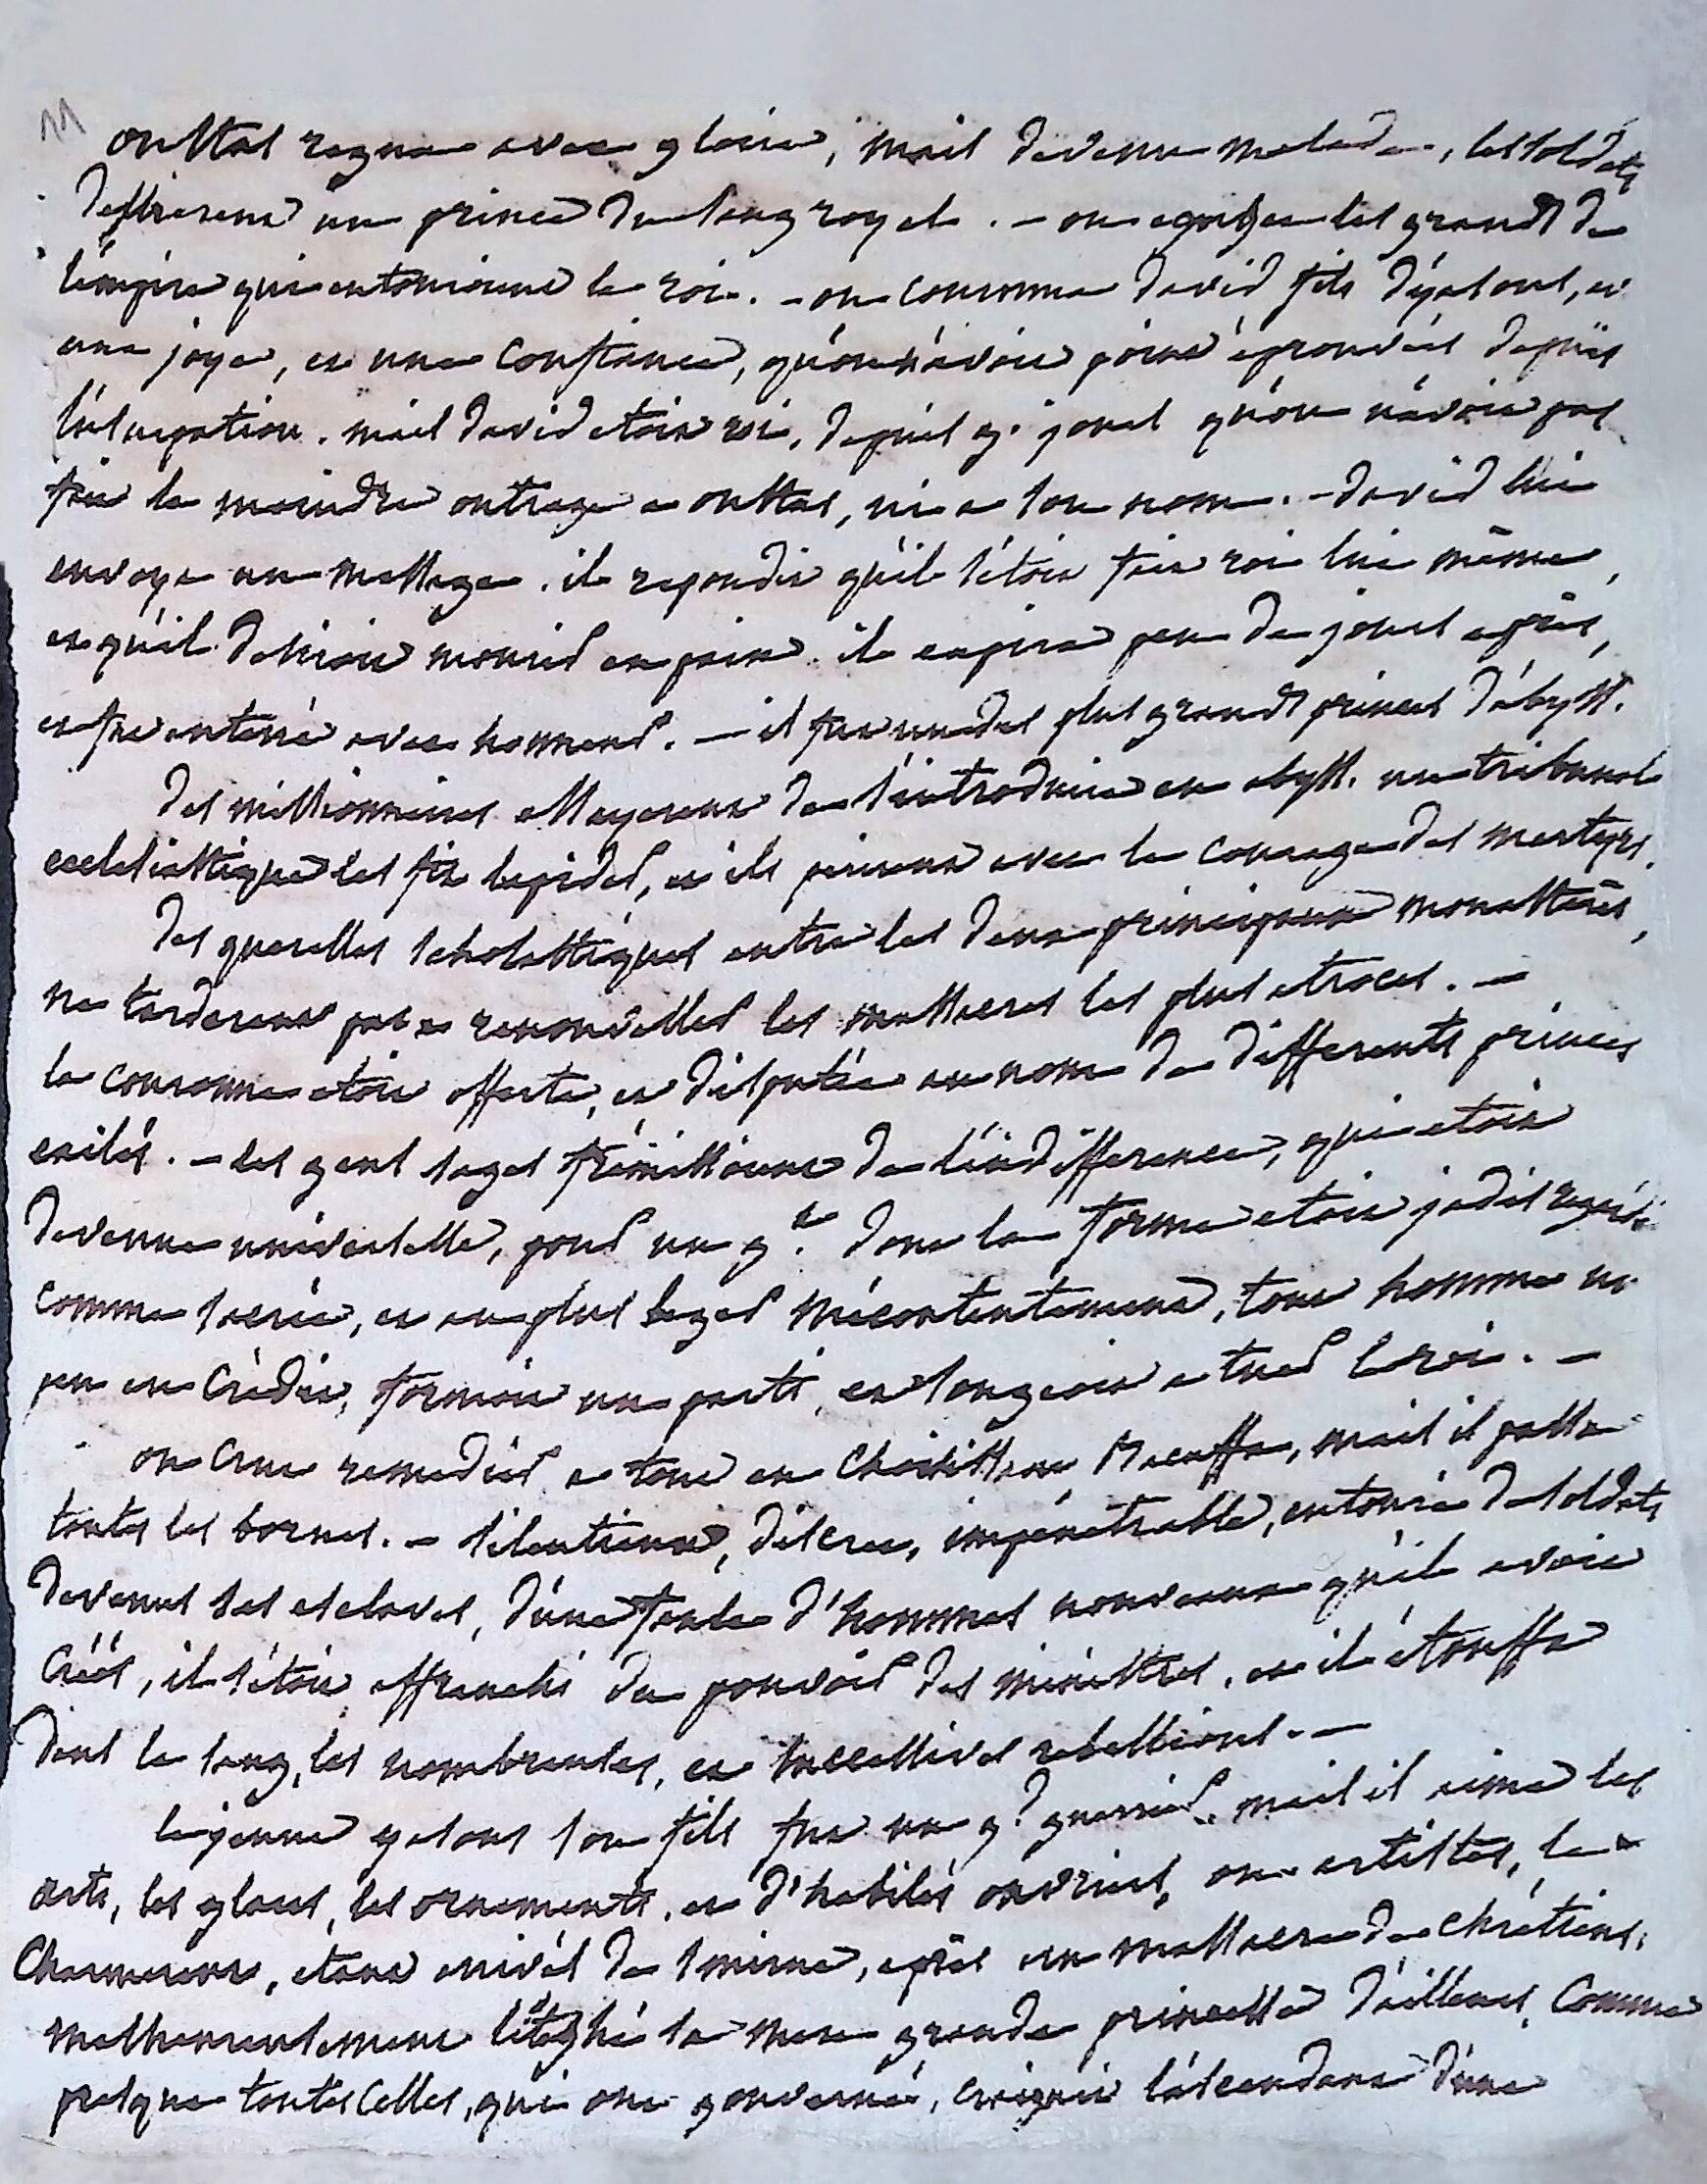 11
oustas regna avec gloire, mais devenu malade, les soldats
desirerent un prince du sang royal. - on egorgea les grands de
l'empire qui entouroient le roi. - on couronna david fils d'yasous, av
une joye, et une confiance, qu'on n'avoit point éprouvées depuis
l'usurpation. mais david etoit roi, depuis q. jours qu'on n'avoit pas
fait le moindre outrage a oustas, ni a son nom. - david lui
envoya un message. il repondit qu'il s'étoit fait roi lui même,
et qu'il desiroit mourir en paix. il expira peu de jours après,
et fut enterré avec honneur. - il fut un des plus grands princes d'abyss.
des missionnaires essayerent de s'introduire en abyss. un tribunal
ecclesiastique les fit lapider, et ils perirent avec le courage des martyrs.
des querelles scholastiques entre les deux principaux monasteres,
ne tarderent pas a renouveller les massacres les plus atroces. -
la couronne etoit offerte, et disputée au nom de differents princes
exilés. - les gens sages frémissoient de l'indifference, qui etoit
devenue universelle, pour un g.t dont la forme etoit jadis regardée
comme sacrée, et au plus leger mécontentement, tout homme un
peu en crédit, formoit un parti, et songeoit a tuer le roi. -
on crut remedier a tout en choisissant Bacuffa, mais il passa
toutes les bornes. - silentieux, discret, impénétrable, entouré de soldats
devenus ses esclaves, d'une foule d'hommes nouveaux qu'il avoit
créés, il s'étoit affranchi du pouvoir des ministres, et il étouffa
dans le sang, les nombreuses, et successives rebellions. -
le jeune yasous son fils fut un g.d guerrier. mais il aima les
arts, les glaces, les ornements, et d'habiles ouvriers, ou artistes, le
charmerent, étant arrivés de smirne, après un massacre de chrétiens.
malheureusement l'iteghé sa mere grande princesse d'ailleurs, comme
presque toutes celles, qui ont gouverné, craignit l'ascendant d'une